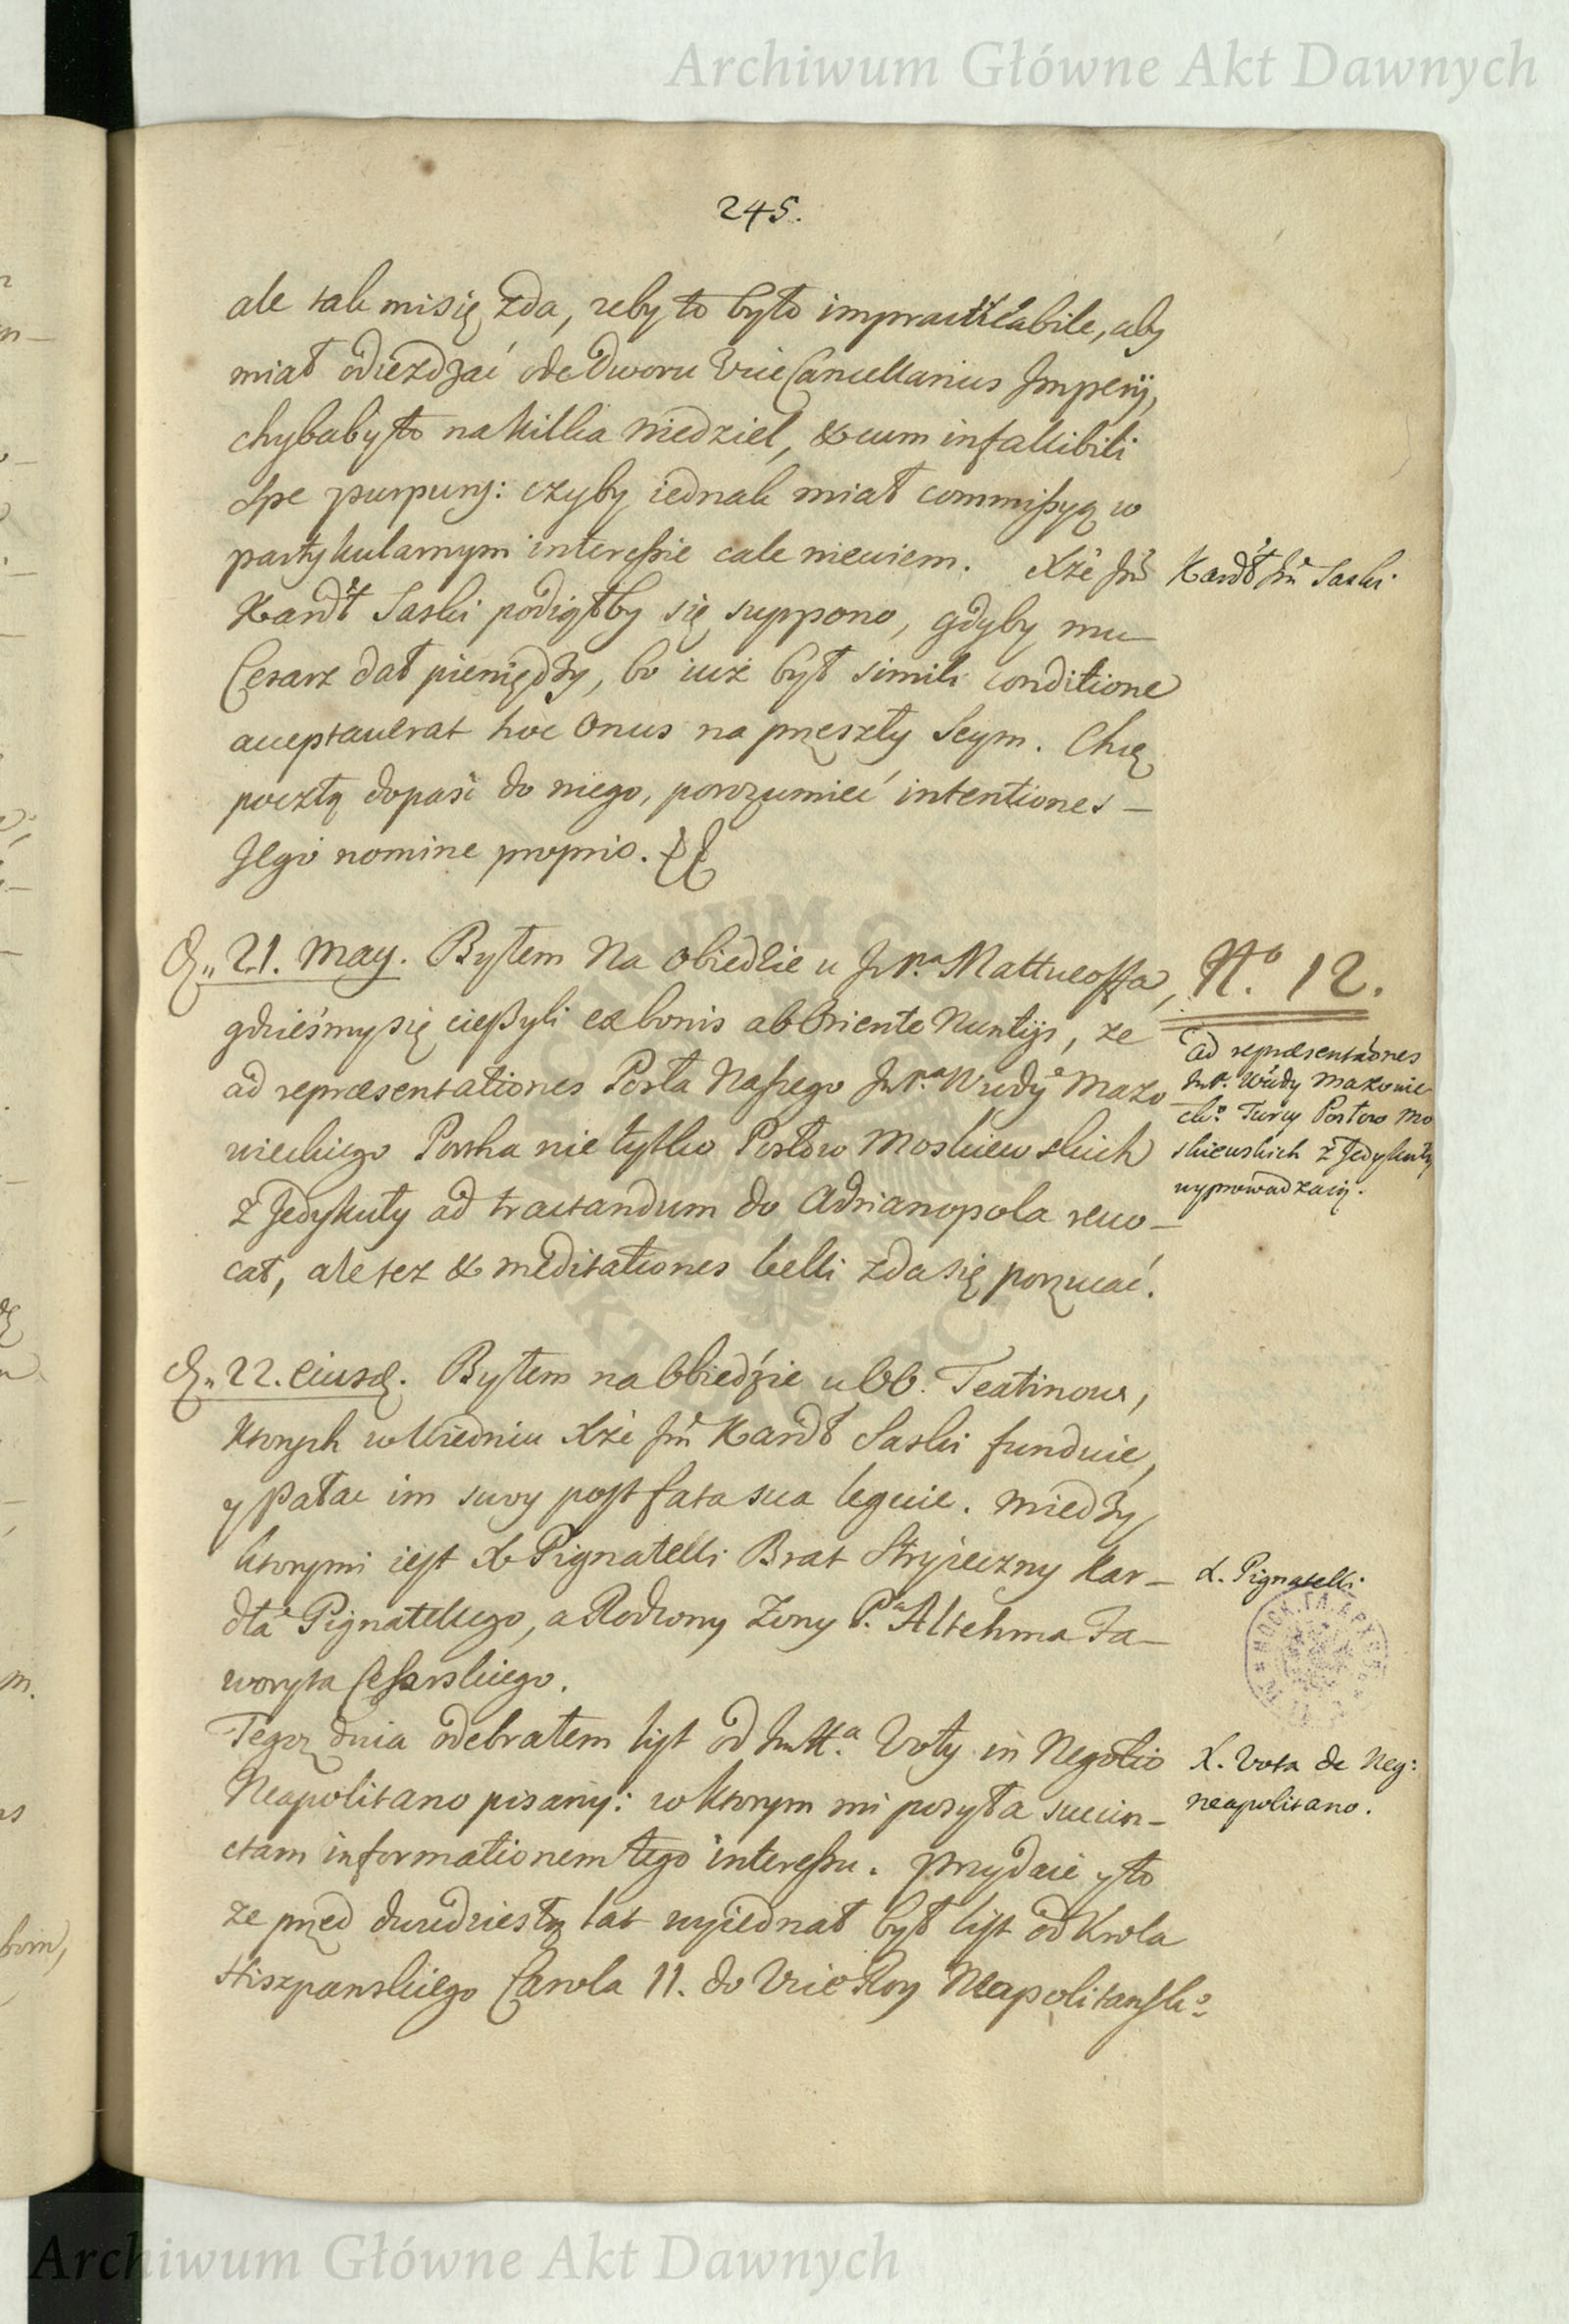 Archiwum Główne Akt Dawnych
245.
ale tak mi się zda, żeby to było impracticabile, aby
miał odieżdzać ode Dworu Vice Cancellarius Imperij,
chybaby to na kilka niedziel, & cum infallibili
spe purpury: czyby iednak miał commissyą w
partykularnym interessie cale niewiem. Xże Jm̃
Kardł Jm̃ Saski
Kardł Saski podiąłby się suppono, gdyby mu
Cesarz dał pieniędzy, bo iuż był simili conditione
acceptaverat hoc onus na przeszły Seym. Chcę
pocztą dopaść do niego, porozumieć intentiones
Jego nomine proprio.
21. May. Byłem na obiedzie u JmP.ª Mattueoffa,
No 12.
gdzieśmy się cieszyli ex bonis ab Oriente Nuntijs, ze
ad repraesentationes Posła Naszego JmP.ª Wwdy Mazo
wieckiego Porta nie tylko Posłow Moskiewskich
z Jedykuły ad tractandum do Adrianopola revo-
cat, ale tez & meditationes belli zda się porzucać.
ad repraesentaones
JmP. Wwdy Mazowie
cko Turcy Posłow Mo
skiewskich z Jedykuły
wyprowadzaią.
22. eiusd. Byłem na Obiedzie u OO. Teatinow,
ktorych w Wiedniu Xże Jm̃ Kardł Saski funduie,
y Pałac im swoy post fata sua leguie. Miedzy
ktorymi iest X Pignatelli Brat Stryieczny Kar-
X. Pignatelli
dła Pignatellego, a Rodzony Zony P.ª Altehma Fa-
woryta Cesarskiego.
Tegoz dnia odebrałem list od JmX.ª Voty in Negotio
X. Vota de Neg:
neapolitano.
Neapolitano pisany: w ktorym mi posyła succin-
ctam informationem tego interessu. Przydaie y to
ze przed dwudziestą lat wyiednał był list od Krola
Hiszpanskiego Carola 11. do Vice Roy Neapolitansko
Archiwum Główne Akt Dawnych